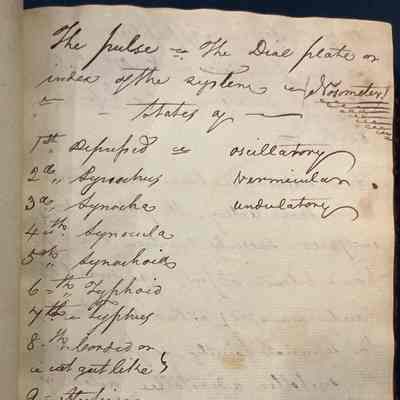 The pulse is The Dial plate or
index of the system is (Nosometer)
" - States of —
1th Depressed is oscillatory
2d ,, Synochus vermicular
3d ,, Synocha undulatory
4th Synocula
5th Synochoid
6th Typhoid
7th Typhus
8th Corded or
cat gut like
9